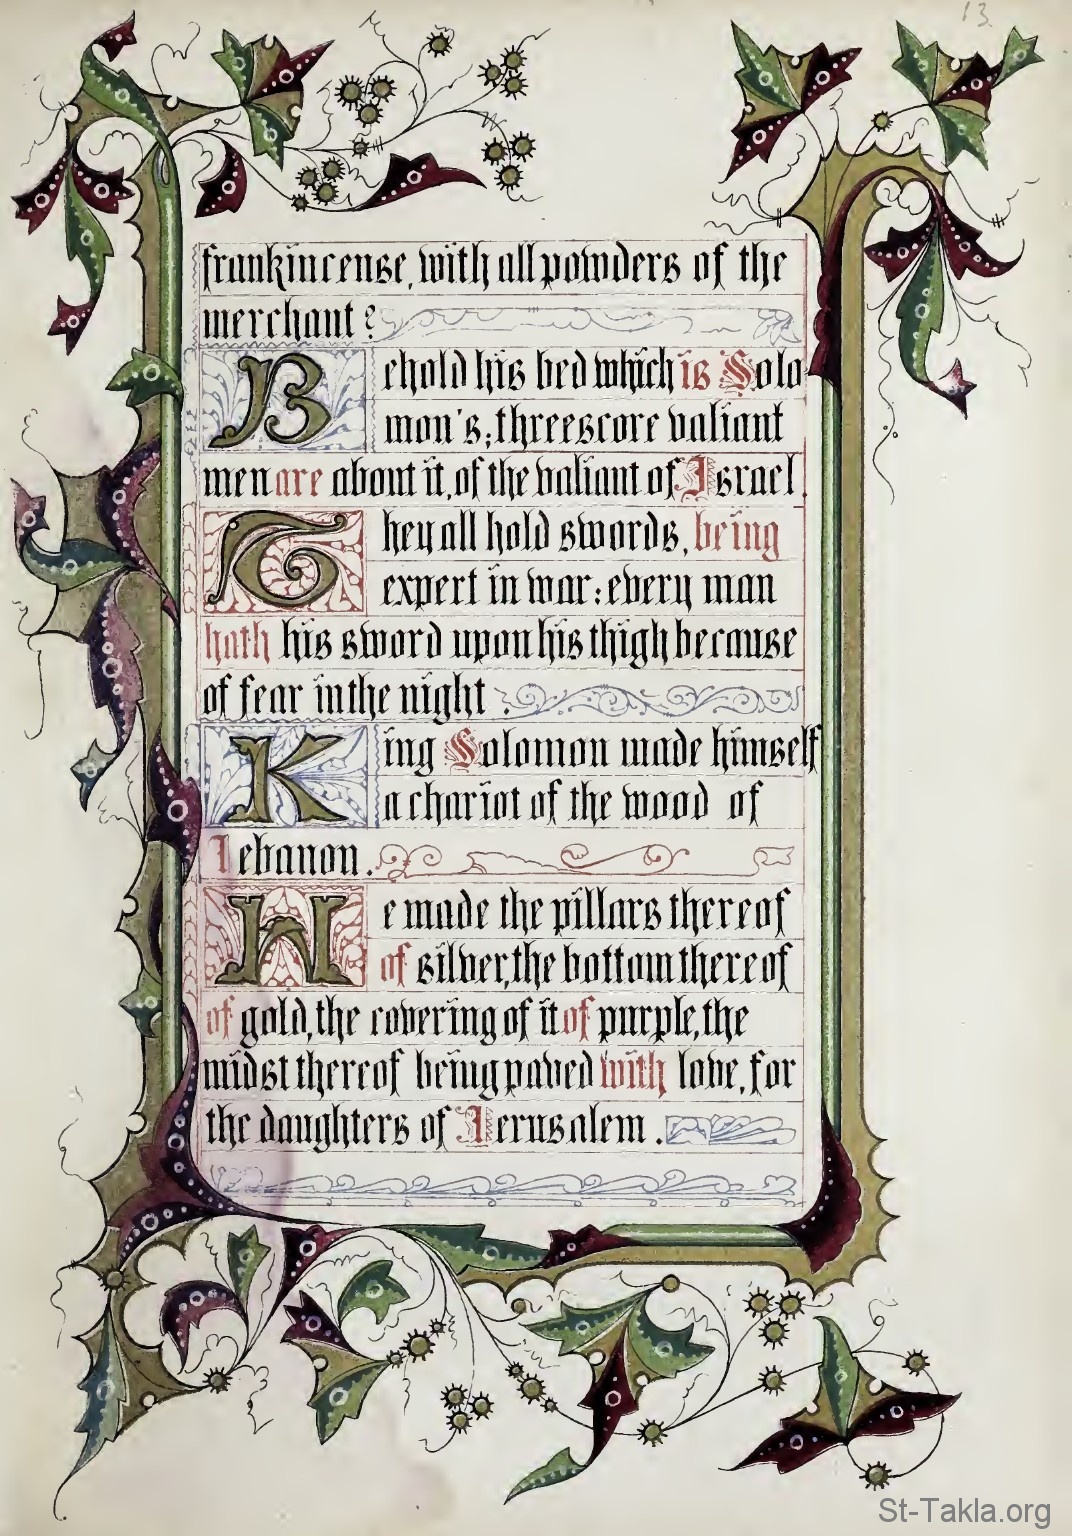 13
frankincense, with all powders of the
merchant?
Behold his bed which is Solo
mon's; threescore valiant
men are about it, of the valiant of Israel.
They all hold swords, being
expert in war: every man
hath his sword upon his thigh because
of fear in the night.
King Solomon made himself
a chariot of the wood of
Lebanon.
He made the pillars thereof
of silver, the bottom thereof
of gold, the covering of it of purple, the
midst thereof being paved with love, for
the daughters of Jerusalem.
St-Takla.org